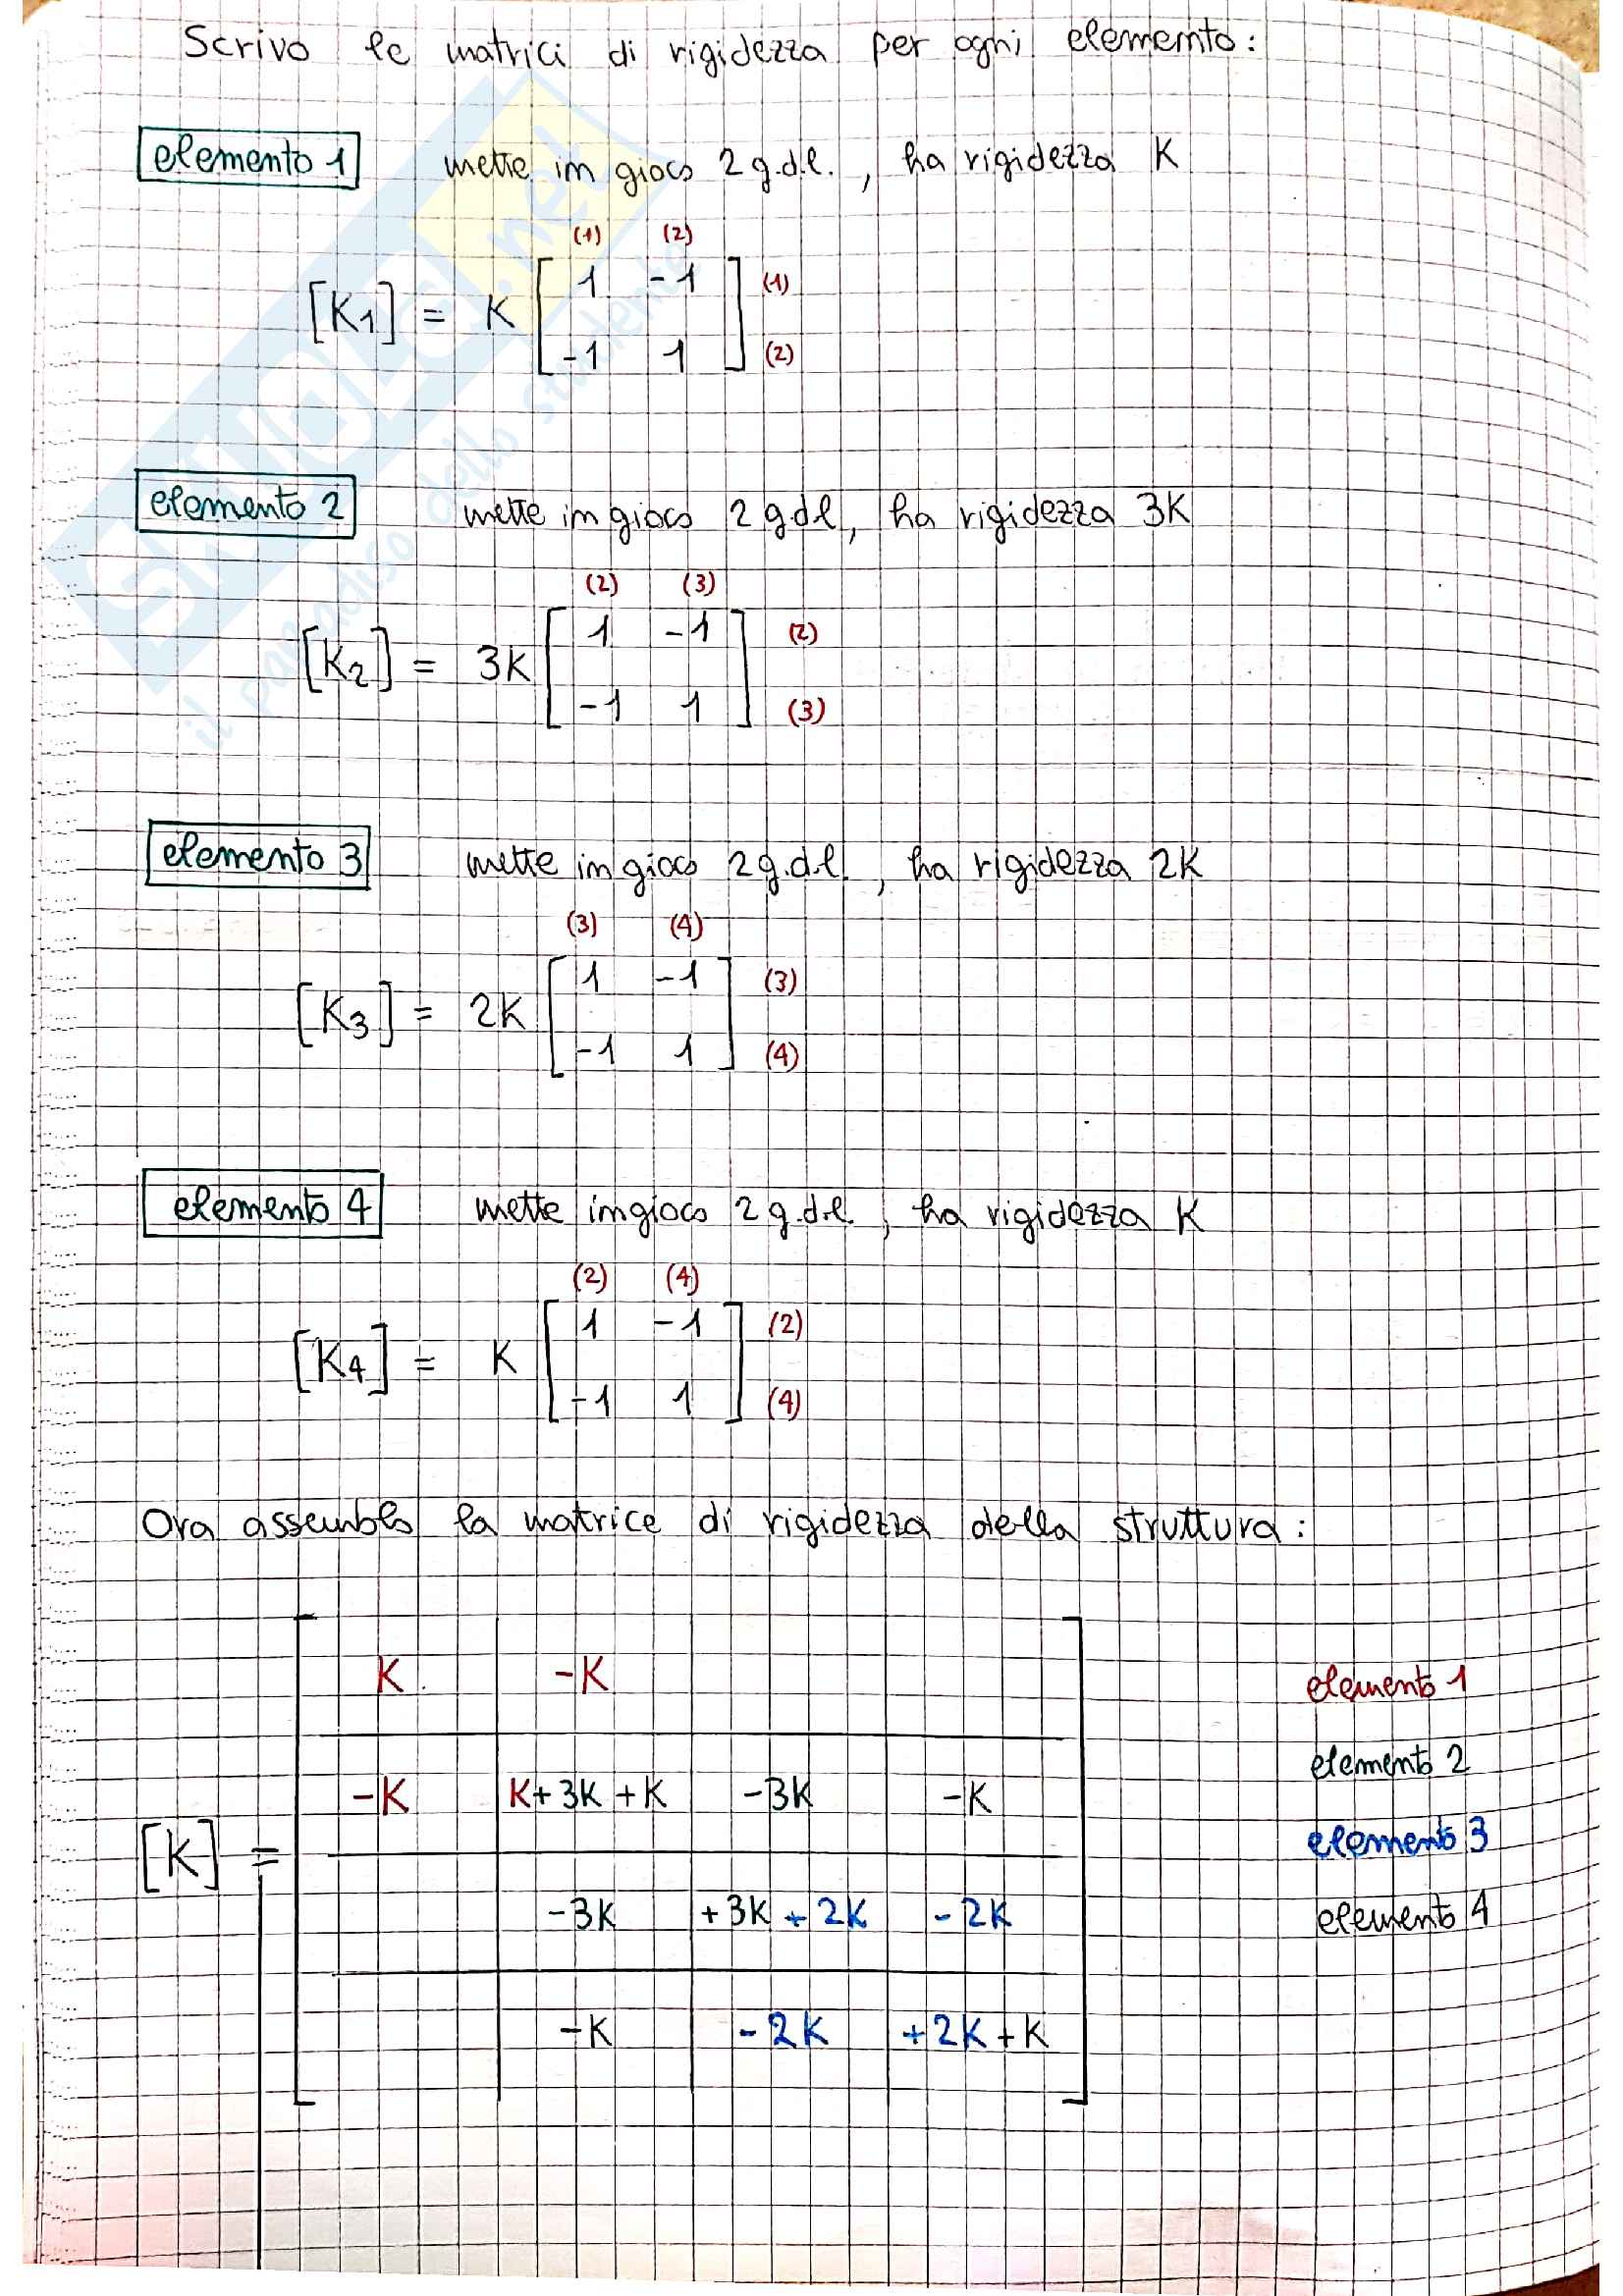 Scrivo le matrici di rigidezza per ogni elemento:
elemento 1 mette in gioco 2 g.d.l. , ha rigidezza K
(1) (2)
[K1] = K [ 1 -1 ] (1)
[ -1 1 ] (2)
elemento 2 mette in gioco 2 gdl, ha rigidezza 3K
(2) (3)
[K2] = 3K [ 1 -1 ] (2)
[ -1 1 ] (3)
elemento 3 mette in gioco 2 g.d.l. , ha rigidezza 2K
(3) (4)
[K3] = 2K [ 1 -1 ] (3)
[ -1 1 ] (4)
elemento 4 mette in gioco 2 g.d.l. , ha rigidezza K
(2) (4)
[K4] = K [ 1 -1 ] (2)
[ -1 1 ] (4)
Ora assemblo la matrice di rigidezza della struttura:
K -K
-K K+3K+K -3K -K
[K] =
-3K +3K+2K -2K
-K -2K +2K+K
elemento 1
elemento 2
elemento 3
elemento 4
skuola.net
il paradiso dello studente